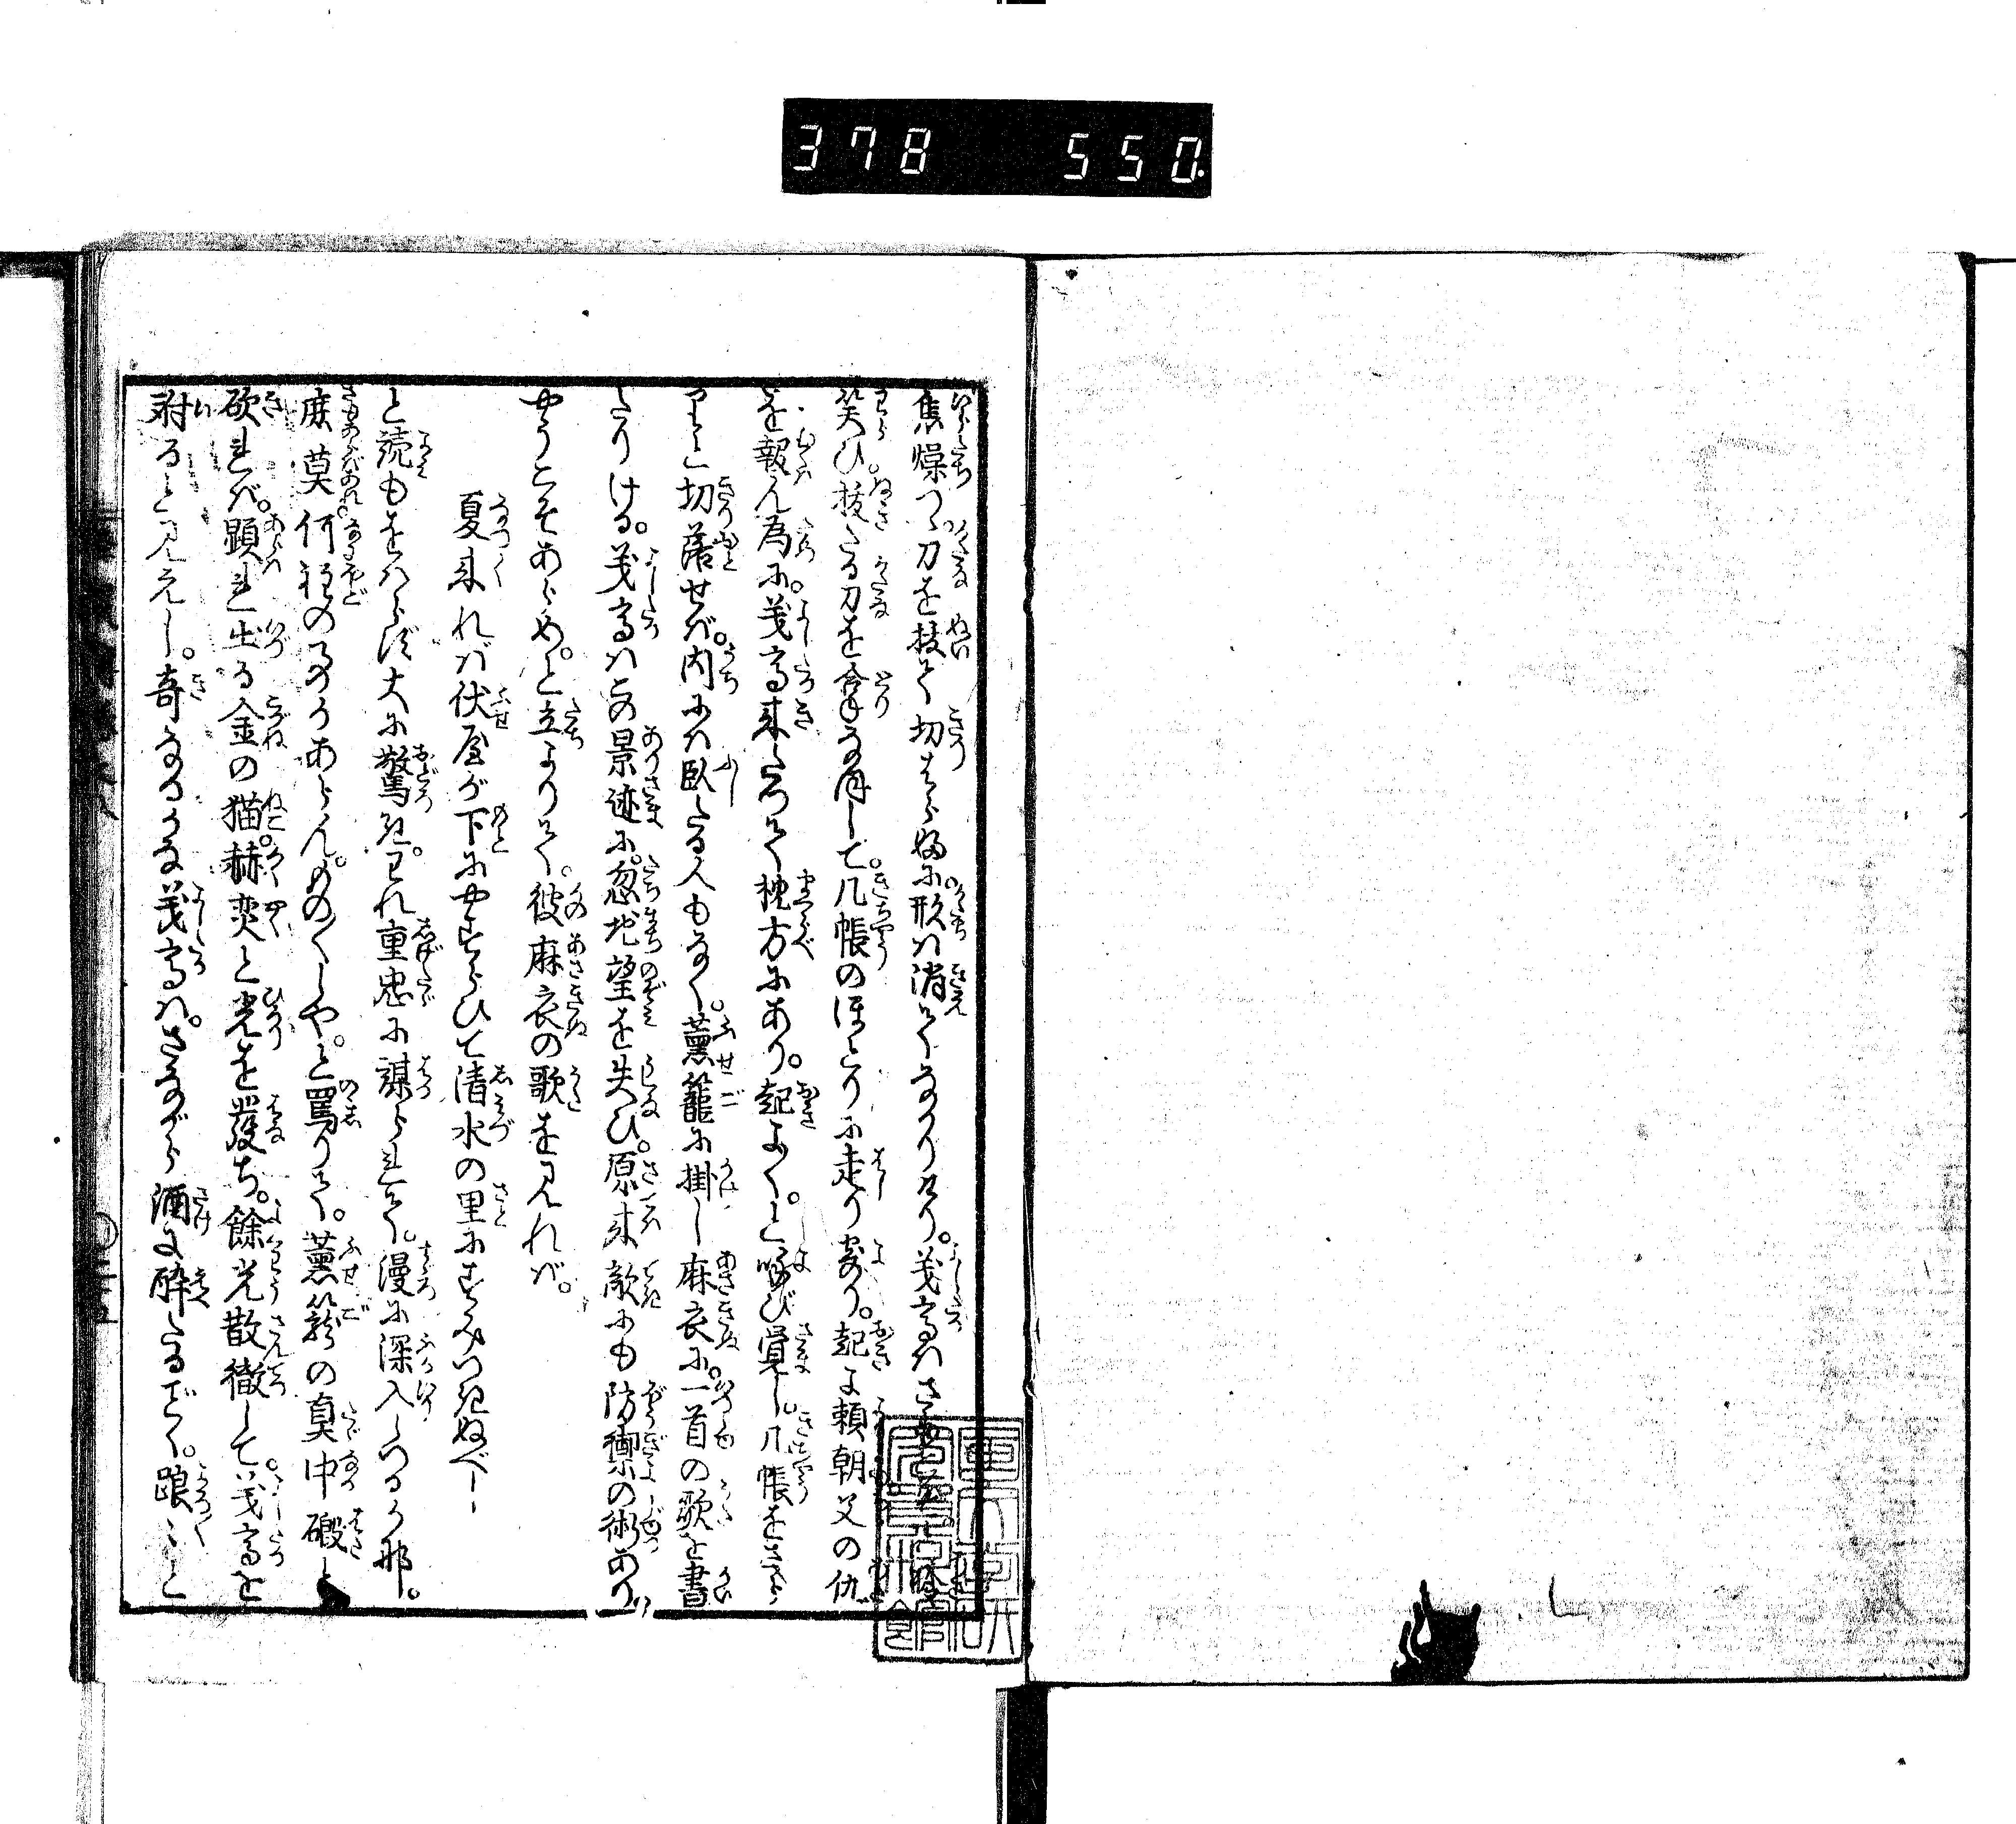 378 550
焦燥つゝ刀を抜て切はらふに形は消てなかりけり。茂高はさ
笑ひ。抜たる刀を合手な月して。几帳のほとりに走り寄り。起よ頼朝父の仇
を報ん為に。茂高来たつて枕方にあり。起よく。と呼び覚し。几帳をさら
りと切落せば。内には臥たる人もなく。薫籠に掛し麻衣に。一首の歌を書
たりける。茂高はこの景迹に。忽地望を失ひ。原来敵にも防禦の術あり
やうこそあらめ。と立よりて。彼麻衣の歌を見れば。
夏来れば伏屋が下にやすらひて清水の里にすみつきぬべし
と読もをはらず大に驚き。われ重忠に謀られて。漫に深入しつるか那。
遮莫何程の事かあらん。ものくしや。と罵りて。薫篭の真中礑と
砍れば。顕れ出る金の猫。赫奕と光を發ち。餘光散徹して。茂高を
射ると見えし。奇なるかな茂高は。さながら酒に酔たるごとく。踉々と